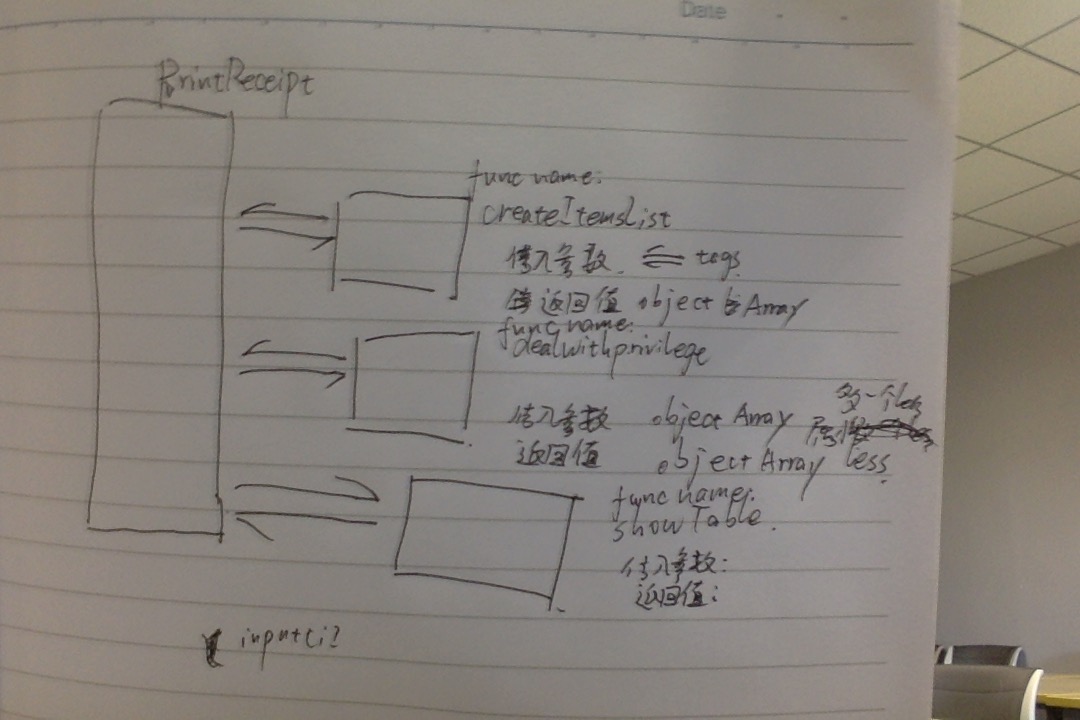 Date
PrintReceipt
func name:
createItemsList
传入参数. ⇐ tags
返回值 object Array
func name:
dealwithprivilege
传入参数 object Array
多一个
返回值 object Array less
func name:
showTable.
传入参数:
返回值:
input